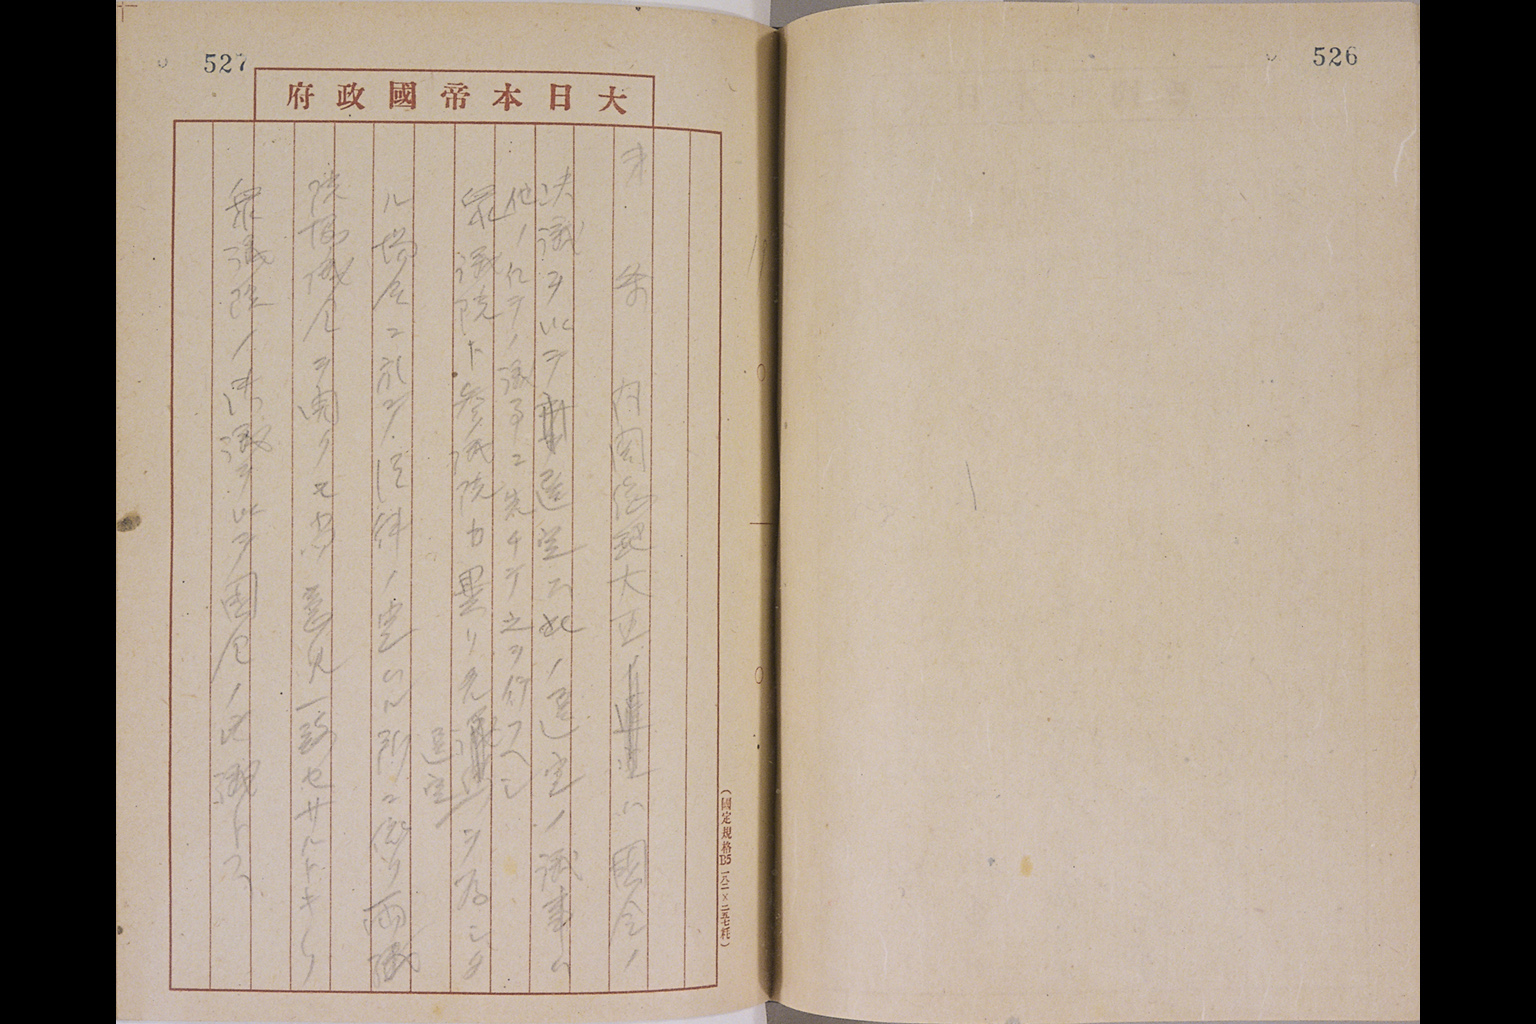 526
527
大日本帝國政府
第　条　内閣総理大臣ハ國会ノ
決議ヲ以テ選定ス此ノ選定ノ議事ハ
他ノ化テノ議事ニ先チテ之ヲ行フヘシ
衆議院ト参議院カ異リタル
選定
ヲ為シタ
ル場合ニ於テ法律ノ定ムル所ニ依リ両議
院協議会ヲ開クモ尚意見一致セサルトキハ
衆議院ノ決議ヲ以テ國会ノ決議トス
(國定規格B5 一八二×二五七粍)